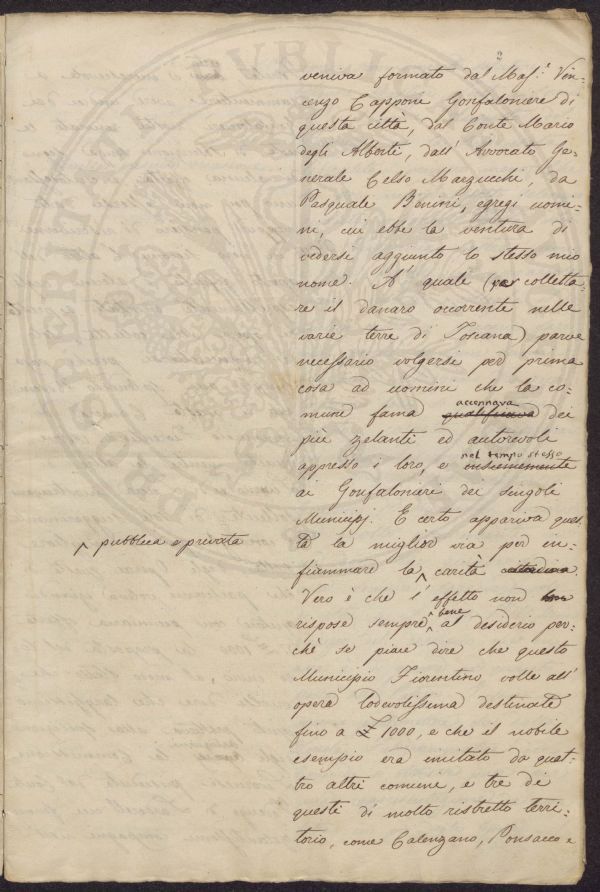 veniva formato dal Mag.e Vin-
cenzo Capponi Gonfaloniere di
questa città, dal Conte Mario
degli Alberti, dall' Avvocato Ge-
nerale Celso Marzucchi, da
Pasquale Benini, egregi uomi-
ni, cui ebbe la ventura di
vedersi aggiunto lo stesso mio
nome. A quale (per colletta-
re il danaro occorrente nelle
varie terre di Toscana) parve
necessario volgersi per prima
cosa ad uomini che la co-
accennava
mune fama qualificava dei
più zelanti ed autorevoli
nel tempo stesso
appresso i loro, e insiememente
ai Gonfalonieri dei singoli
Municipj. E certo appariva ques-
ta la miglior via per in-
pubblica e privata
fiammare la carità cittadina.
Vero è che l'effetto non
bene
rispose sempre al desiderio per-
chè se piace dire che questo
Municipio Fiorentino volle all'
opera lodevolissima destinate
fino a £ 1000, e che il nobile
esempio era imitato da quat-
tro altri comuni, e tre di
questi di molto ristretto terri-
torio, come Calenzano, Ponsacco e